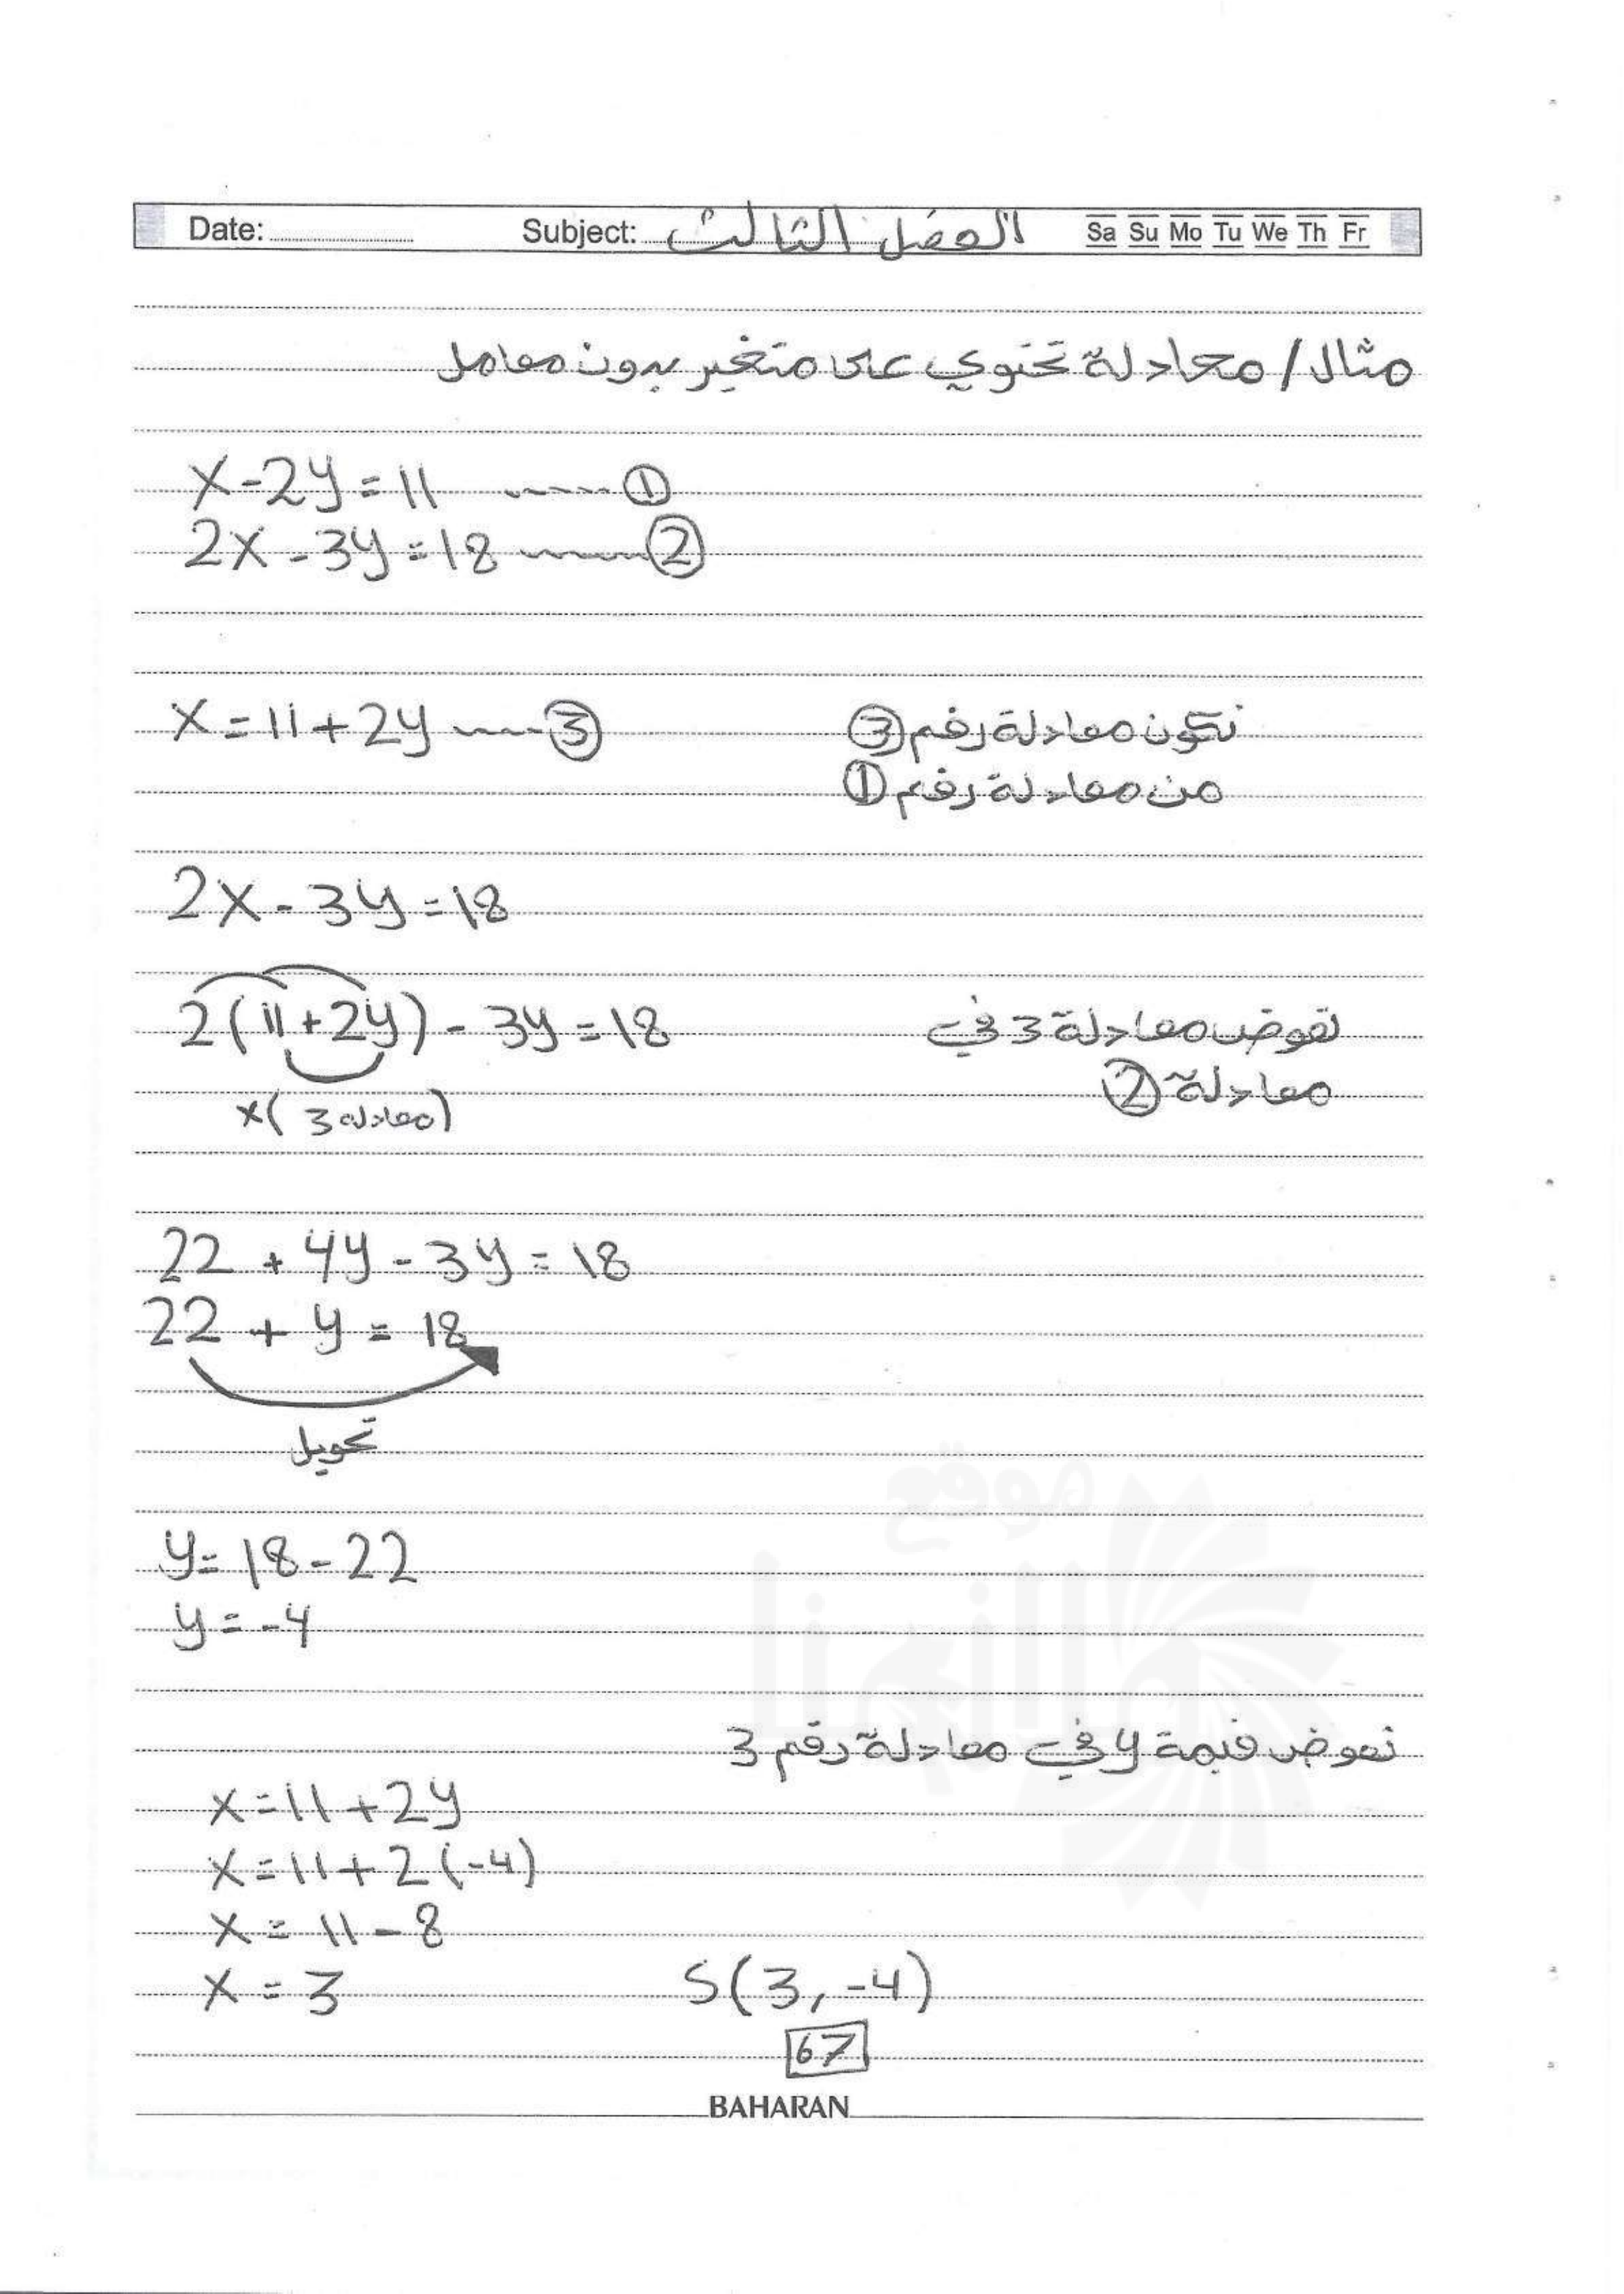 Date: Subject: الفصل الثالث Sa Su Mo Tu We Th Fr
مثال/ معادلة تحتوي على متغير بدون معامل
x-2y=11 ①
2x-3y=18 ②
x=11+2y ③ نكون معادلة رقم ③
من معادلة رقم ①
2x-3y=18
2(11+2y)-3y=18 نعوض معادلة 3 في
معادلة ②
x(معادلة 3)
22+4y-3y=18
22+y=18
تحويل
y=18-22
y=-4
نعوض قيمة y في معادلة رقم 3
x=11+2y
x=11+2(-4)
x=11-8
x=3 S(3,-4)
67
BAHARAN